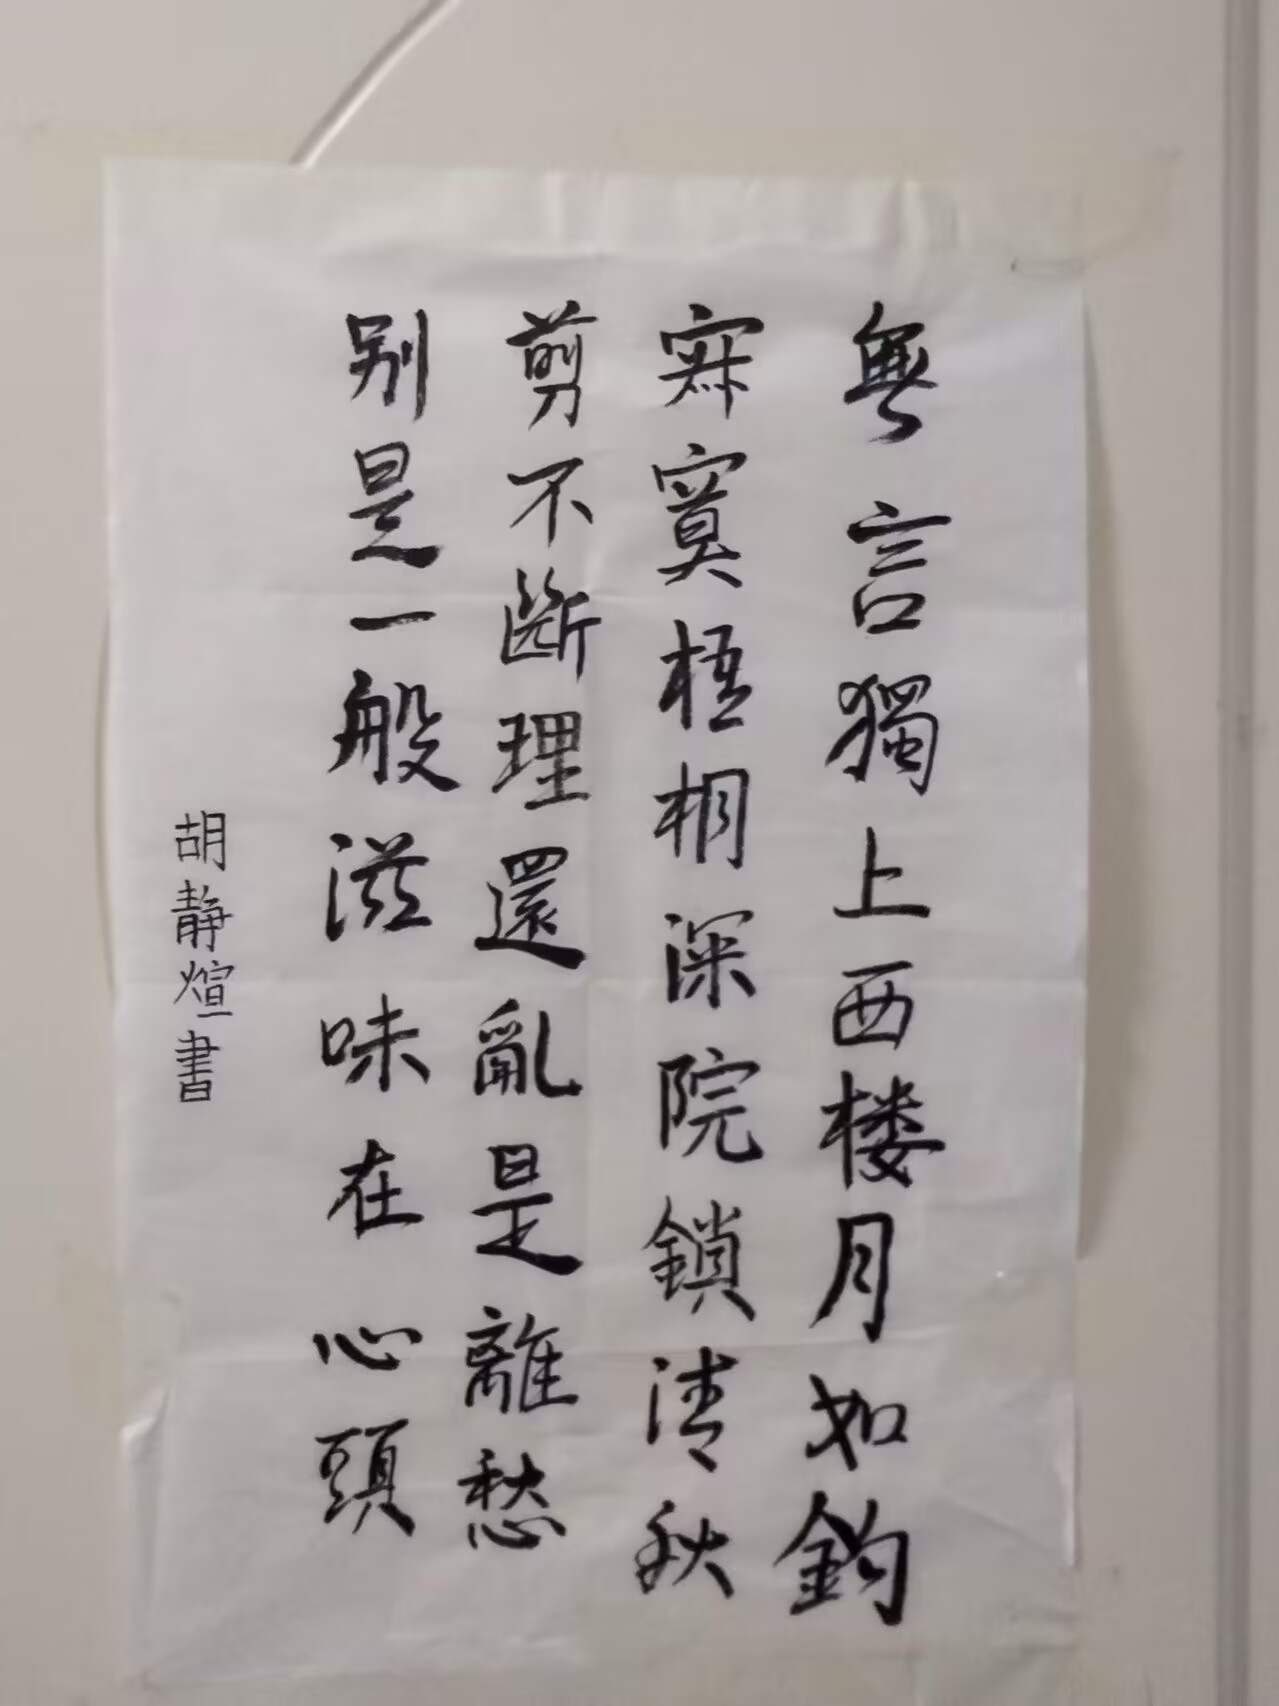 無言獨上西楼月如鈎
寂寞梧桐深院鎖清秋
剪不斷理還亂是離愁
别是一般滋味在心頭
胡静煊書